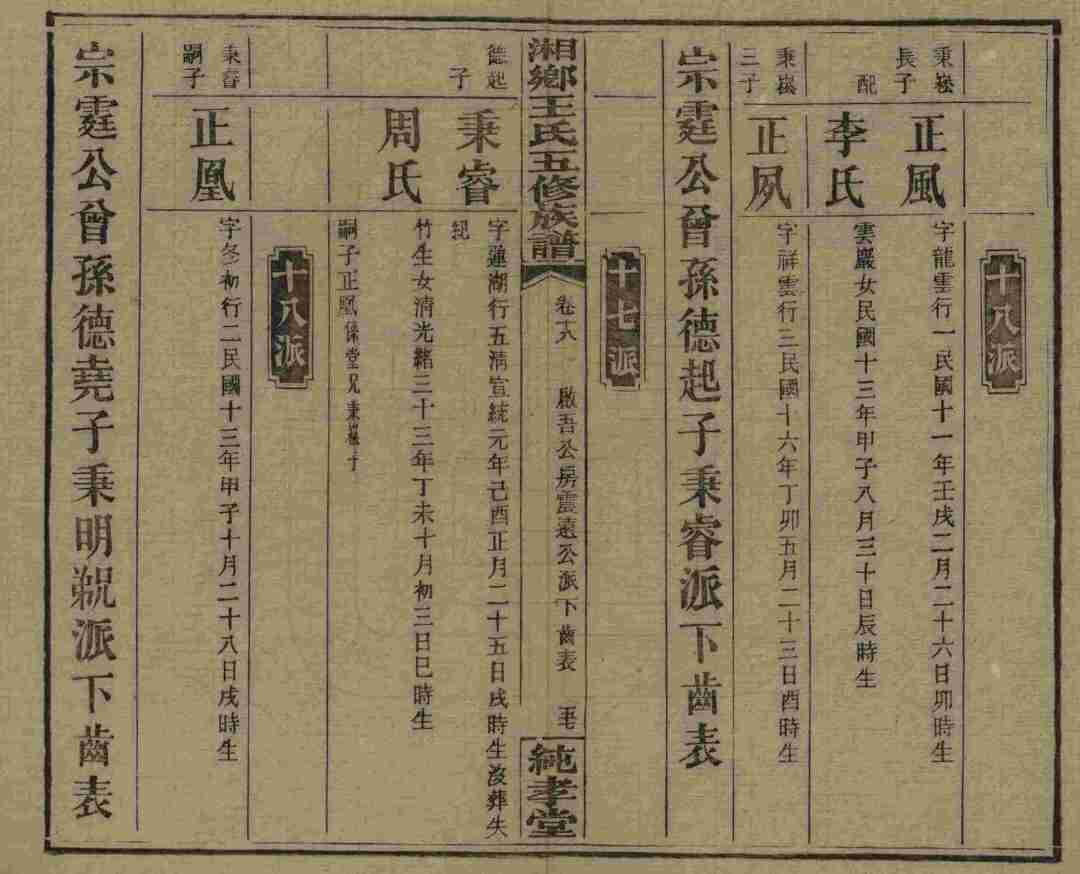 十八派
秉崧長子
正風
字龍雲行一民國十一年壬戌二月二十六日卯時生
配
李氏
雲巖女民國十三年甲子八月三十日辰時生
秉崧三子
正夙
字祥雲行三民國十六年丁卯五月二十三日酉時生
宗霆公曾孫德起子秉睿派下齒表
十七派
湘鄉王氏五修族譜
卷十八
啟吾公房震遠公派下齒表
純孝堂
德起子
秉睿
字蓮湖行五清宣統元年己酉正月二十五日戌時生沒葬失紀
周氏
竹生女清光緒三十三年丁未十月初三日巳時生
嗣子正凰係堂兄秉崧子
十八派
秉睿嗣子
正凰
字冬初行二民國十三年甲子十月二十八日戌時生
宗霆公曾孫德堯子秉明繼派下齒表